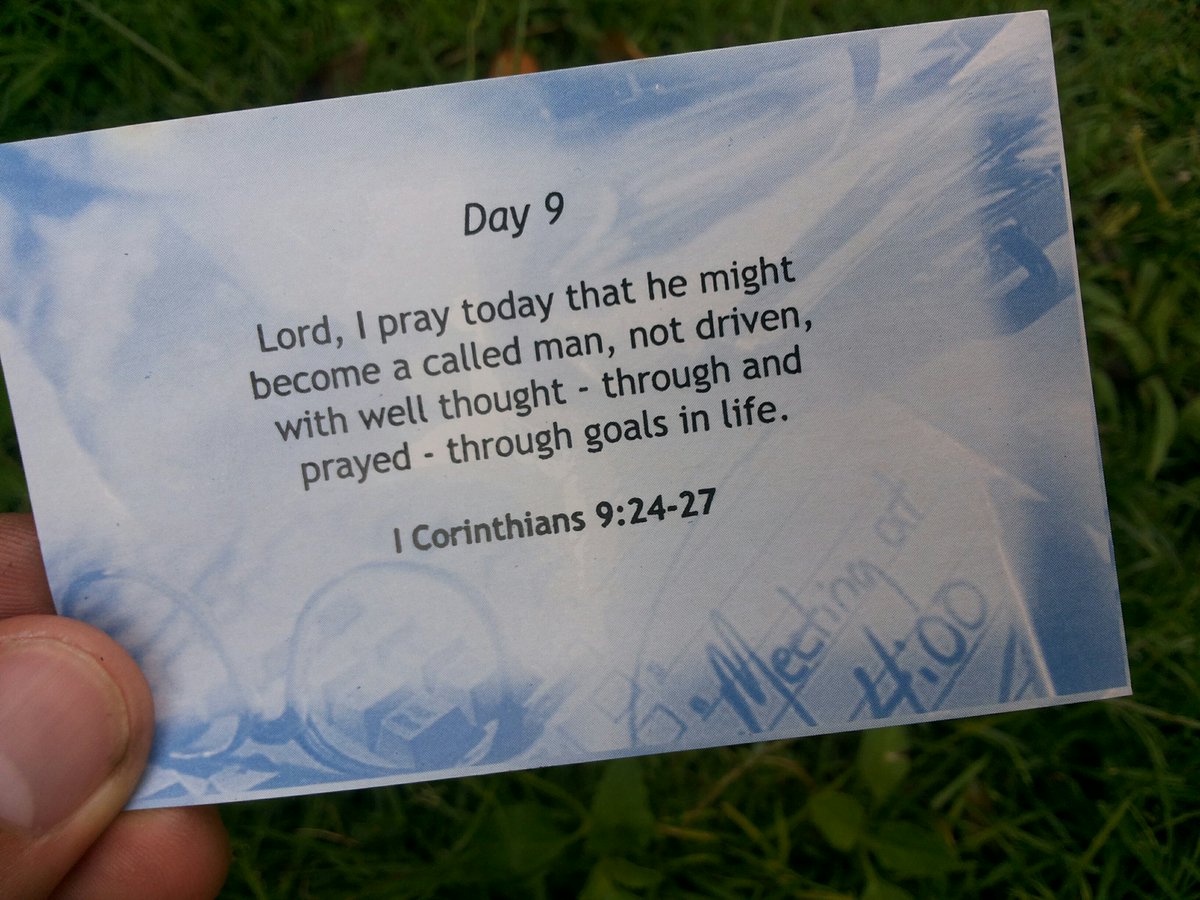 Day 9
Lord, I pray today that he might
become a called man, not driven,
with well thought - through and
prayed - through goals in life.
I Corinthians 9:24-27
Meeting at
4:00